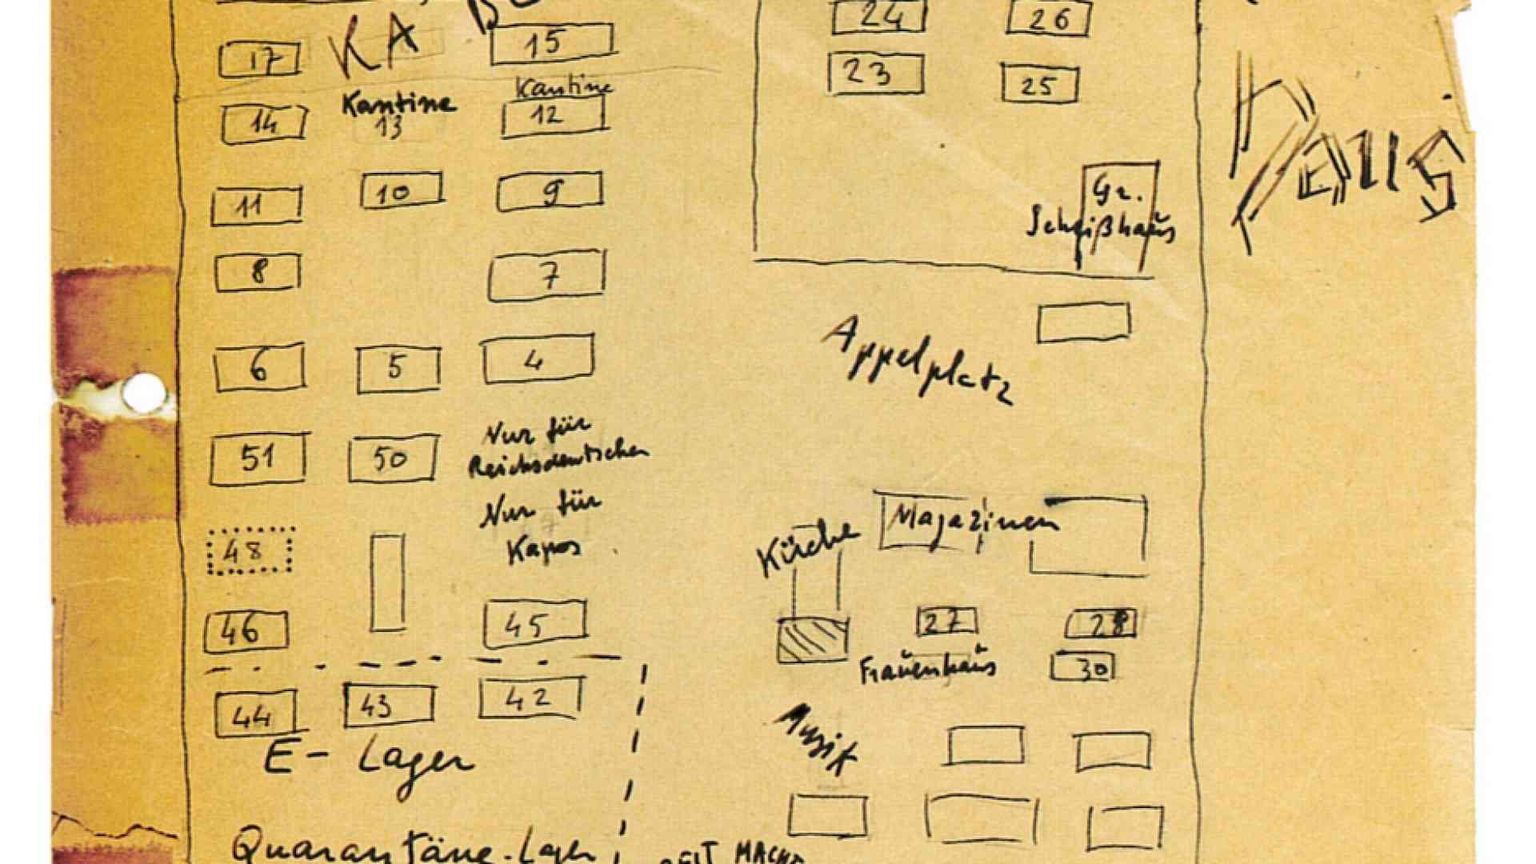 24
26
17
KA
15
23
25
Kantine
Kantine
14
13
12
11
10
9
Gr.
Scheißhaus
8
7
Appelplatz
6
5
4
51
50
Nur für
Reichsdeutschen
Nur für
Kapos
48
Küche
Magazinen
46
45
27
28
Frauenhaus
30
44
43
42
E-Lager
Musik
Quarantäne-Lager